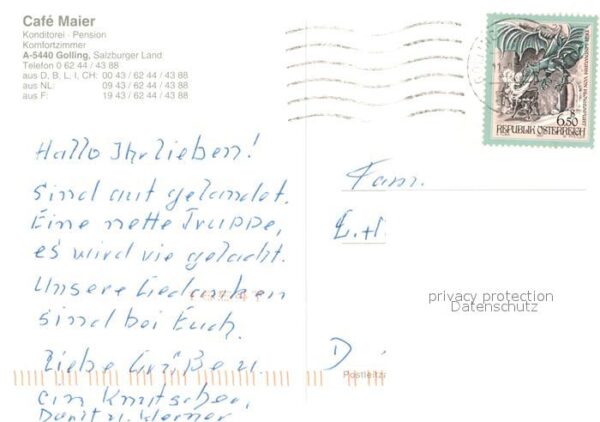 Café Maier
Konditorei · Pension
Komfortzimmer
A-5440 Golling, Salzburger Land
Telefon 0 62 44 / 43 88
aus D, B, L, I, CH: 00 43 / 62 44 / 43 88
aus NL: 09 43 / 62 44 / 43 88
aus F: 19 43 / 62 44 / 43 88
6.50
REPUBLIK ÖSTERREICH
Hallo Ihr lieben!
Sind gut gelandet.
Eine nette Truppe,
es wird vie gelacht.
Unsere Gedanken
sind bei Euch.
Liebe Grüße u.
ein Knutscher,
Werner
Fam.
E.+H.
D
Postleitza
privacy protection
Datenschutz